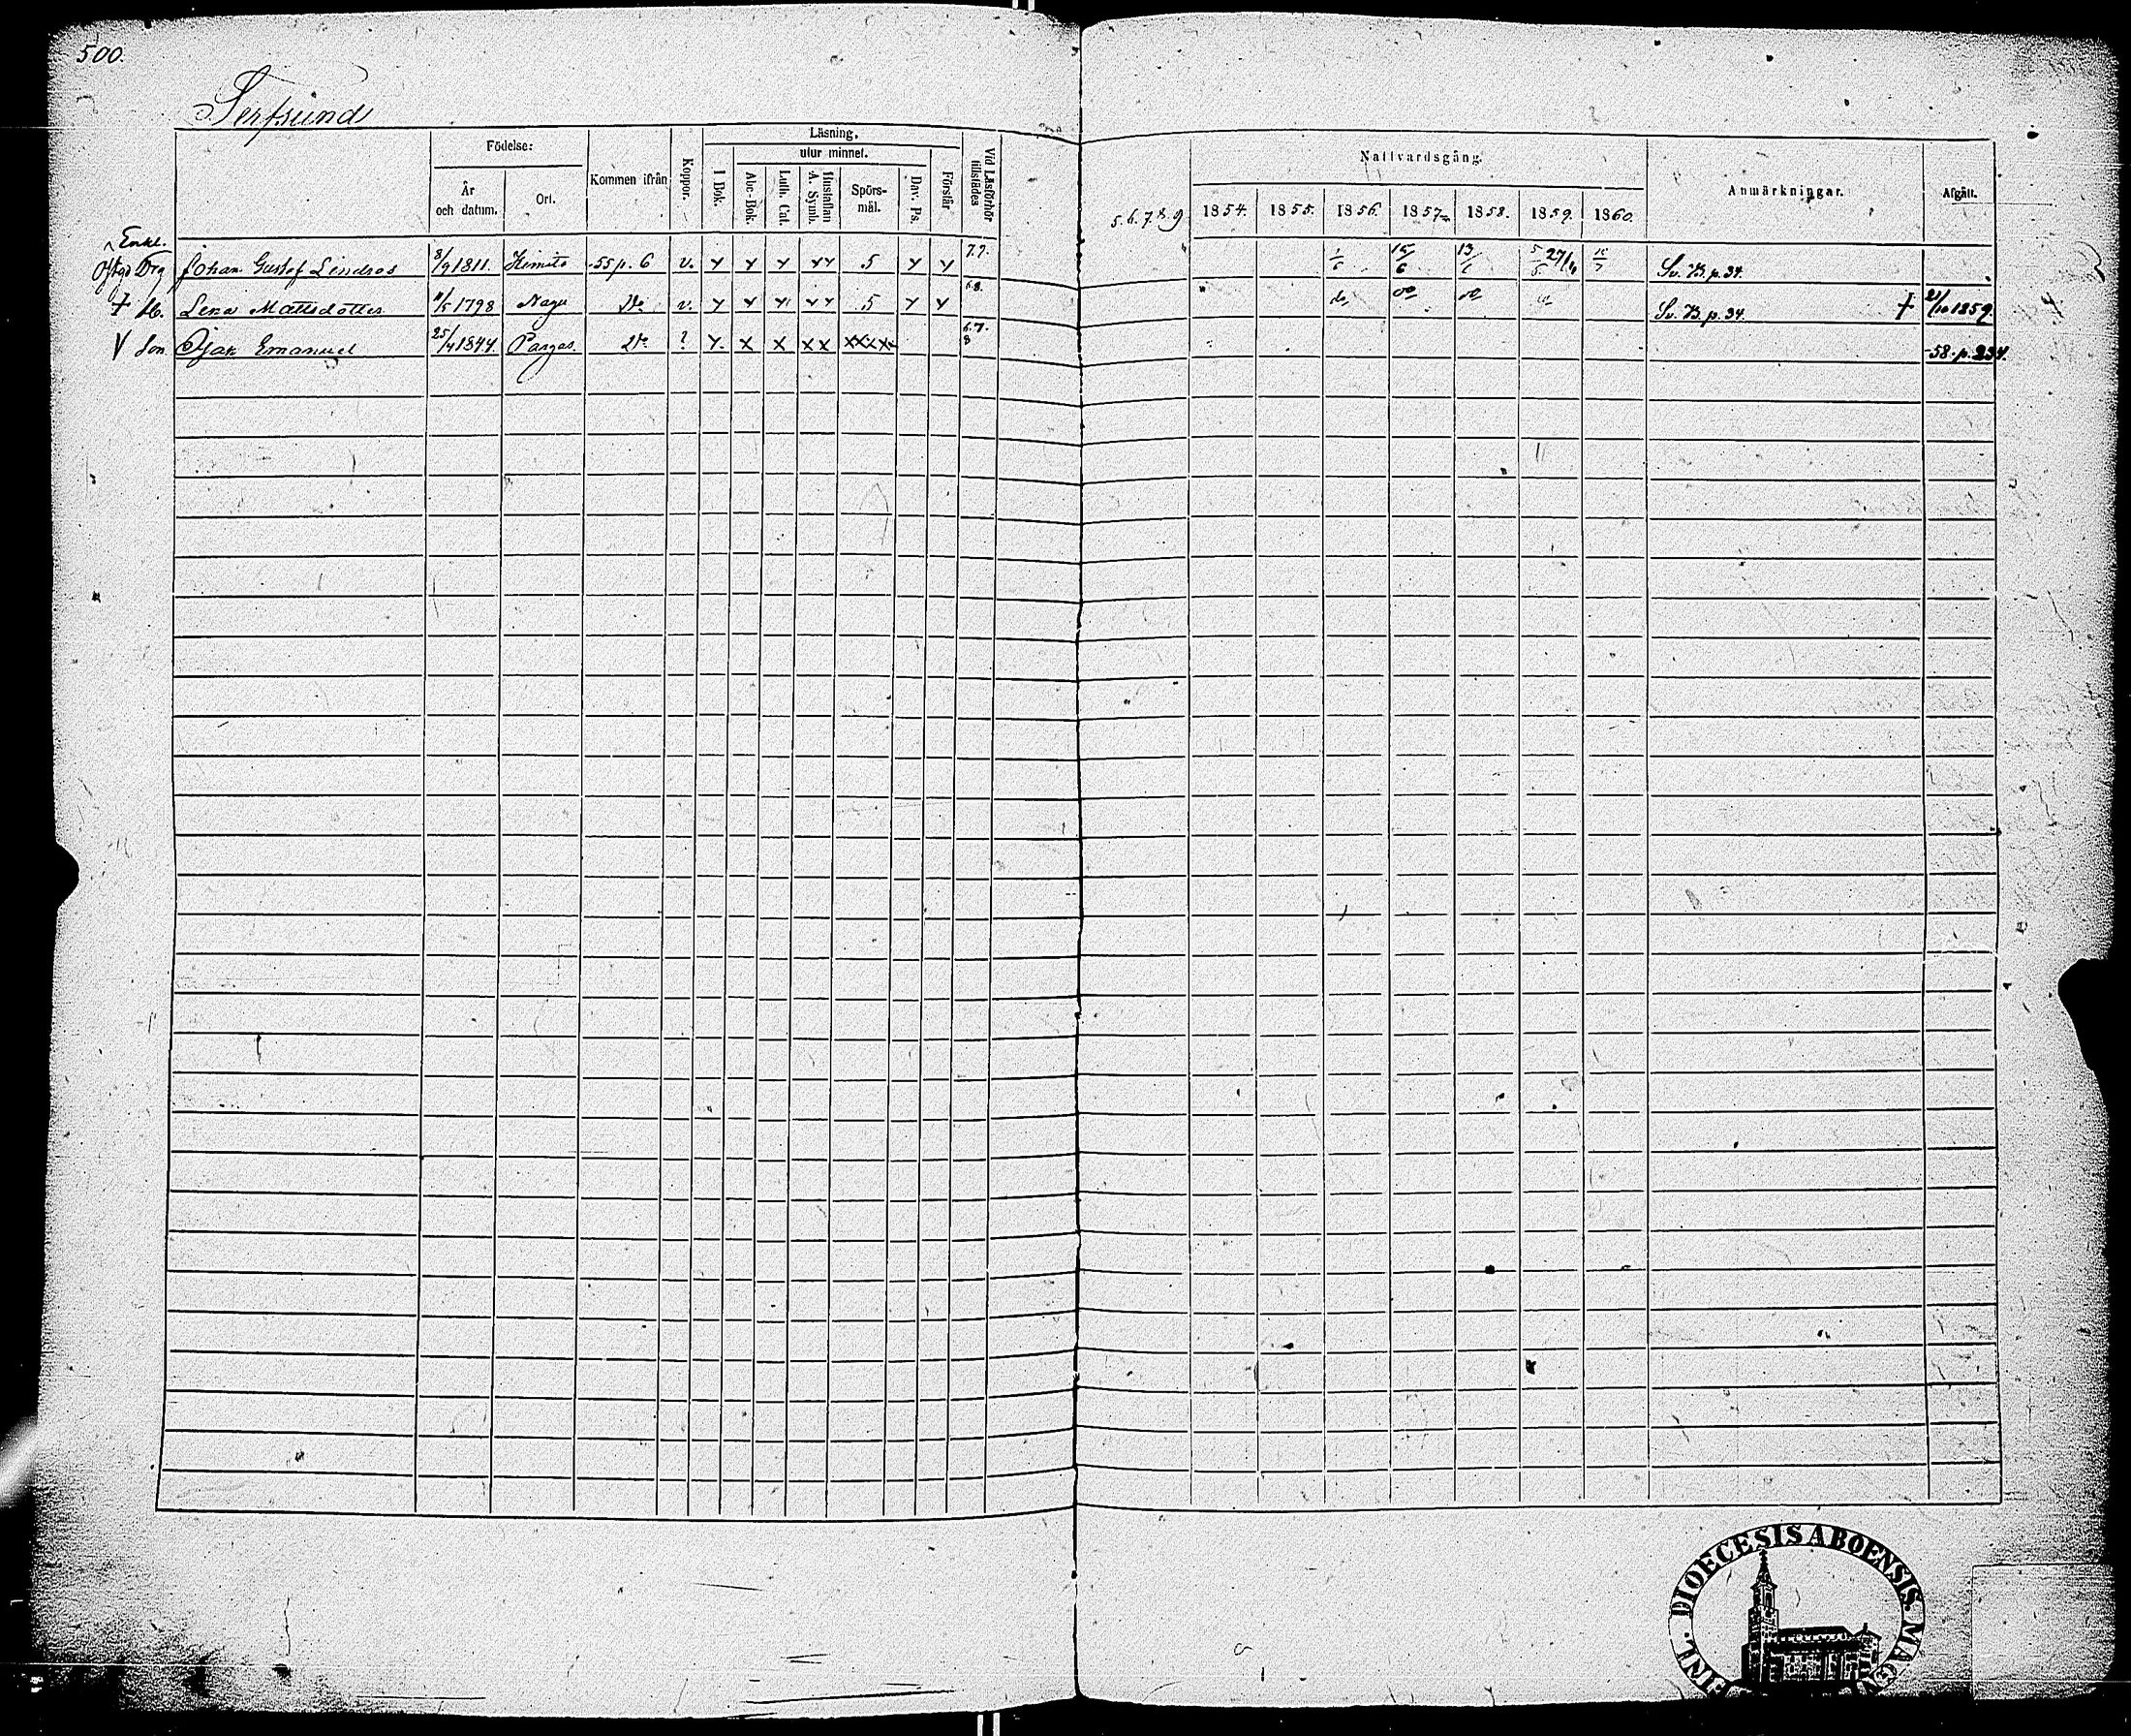 500.
Födelse:
År och datum.
Ort.
Kommen ifrån
Koppor.
Läsning.
I Bok.
utur minnet.
Abc-Bok.
Luth. Cat.
Hustaflan A. Symb.
Spörs-mål.
Dav. Ps.
Förstår
Vid Läsförhör tillstädes
5.6.7.8.9
Nattvardsgång.
1854. 1855. 1856. 1857. 1858. 1859. 1860.
Anmärkningar.
Afgått.
Enkl.
Johan Gustaf Lindroos 8/9 1811. Kimito 55 p. 6 v. 5 7.9. 1/6 15/6 13/6 5/6 27/11 15/7 Sv. B. p. 34.
† Lena Mattsdotter 1798 Nagu Do v. 5 6.8. do do do Sv. B. p. 34. † 21/10 1859.
V Son Isak Emanuel 25/4 1844. Pargas. Do ? 6.7. 8 -58. p. 234.
FINL. DIOECESIS ABOENSIS. MAGN